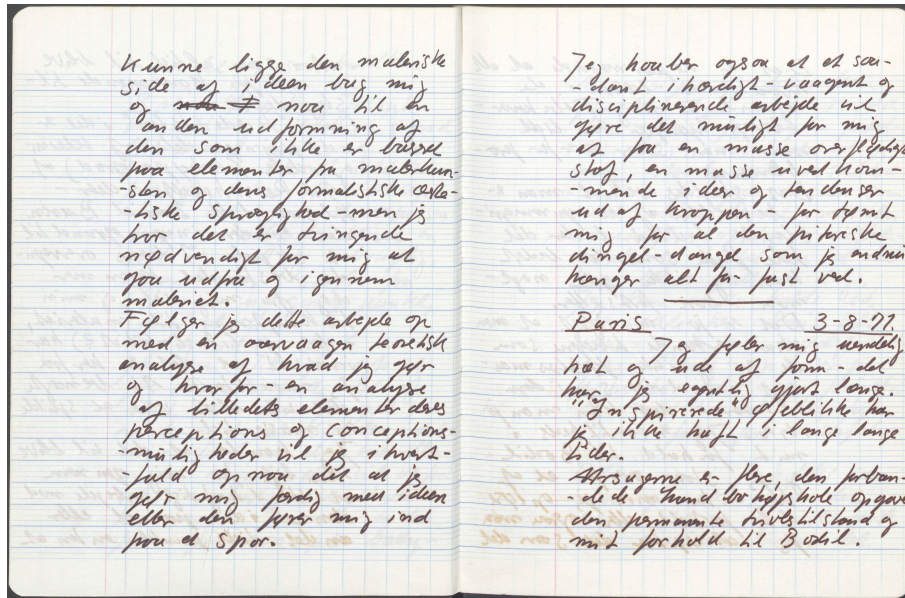 kunne ligge den maleriske
side af ideen bag mig
og naa til en
anden udformning af
den som ikke er baseret
paa elementer fra malerkun-
-sten og dens formalistiske æste-
-tiske sproglighed - men jeg
tror det er tvingende
nødvendigt for mig at
gaa udfra og igennem
maleriet.
Følger jeg dette arbejde op
med en overvaagen teoretisk
analyse af hvad jeg gør
og hvorfor - en analyse
af billedets elementer deres
perceptions og conceptions-
-muligheder vil jeg i hvert-
-fald opnaa det at jeg
gør mig færdig med ideen
eller den fører mig ind
paa et spor.
Jeg haaber ogsaa at et saa-
-dant ihærdigt - vaagent og
disciplinerende arbejde vil
gøre det muligt for mig
at faa en masse overflødigt
stof, en masse uvedkom-
-mende ideer og tendenser
ud af kroppen - for tømt
mig for al den pikareske
dingel-dangel som jeg endnu
hænger alt for fast ved.
Paris 3-8-77.
Jeg føler mig uendelig
træt og ude af form - det
har jeg egentlig gjort længe.
"Inspirerede" øjeblikke har
jeg ikke haft i lange lange
tider.
Aarsagerne er flere, den forban-
-dede hovedopgave
den permanente tvivlstilstand og
mit forhold til Bodil.